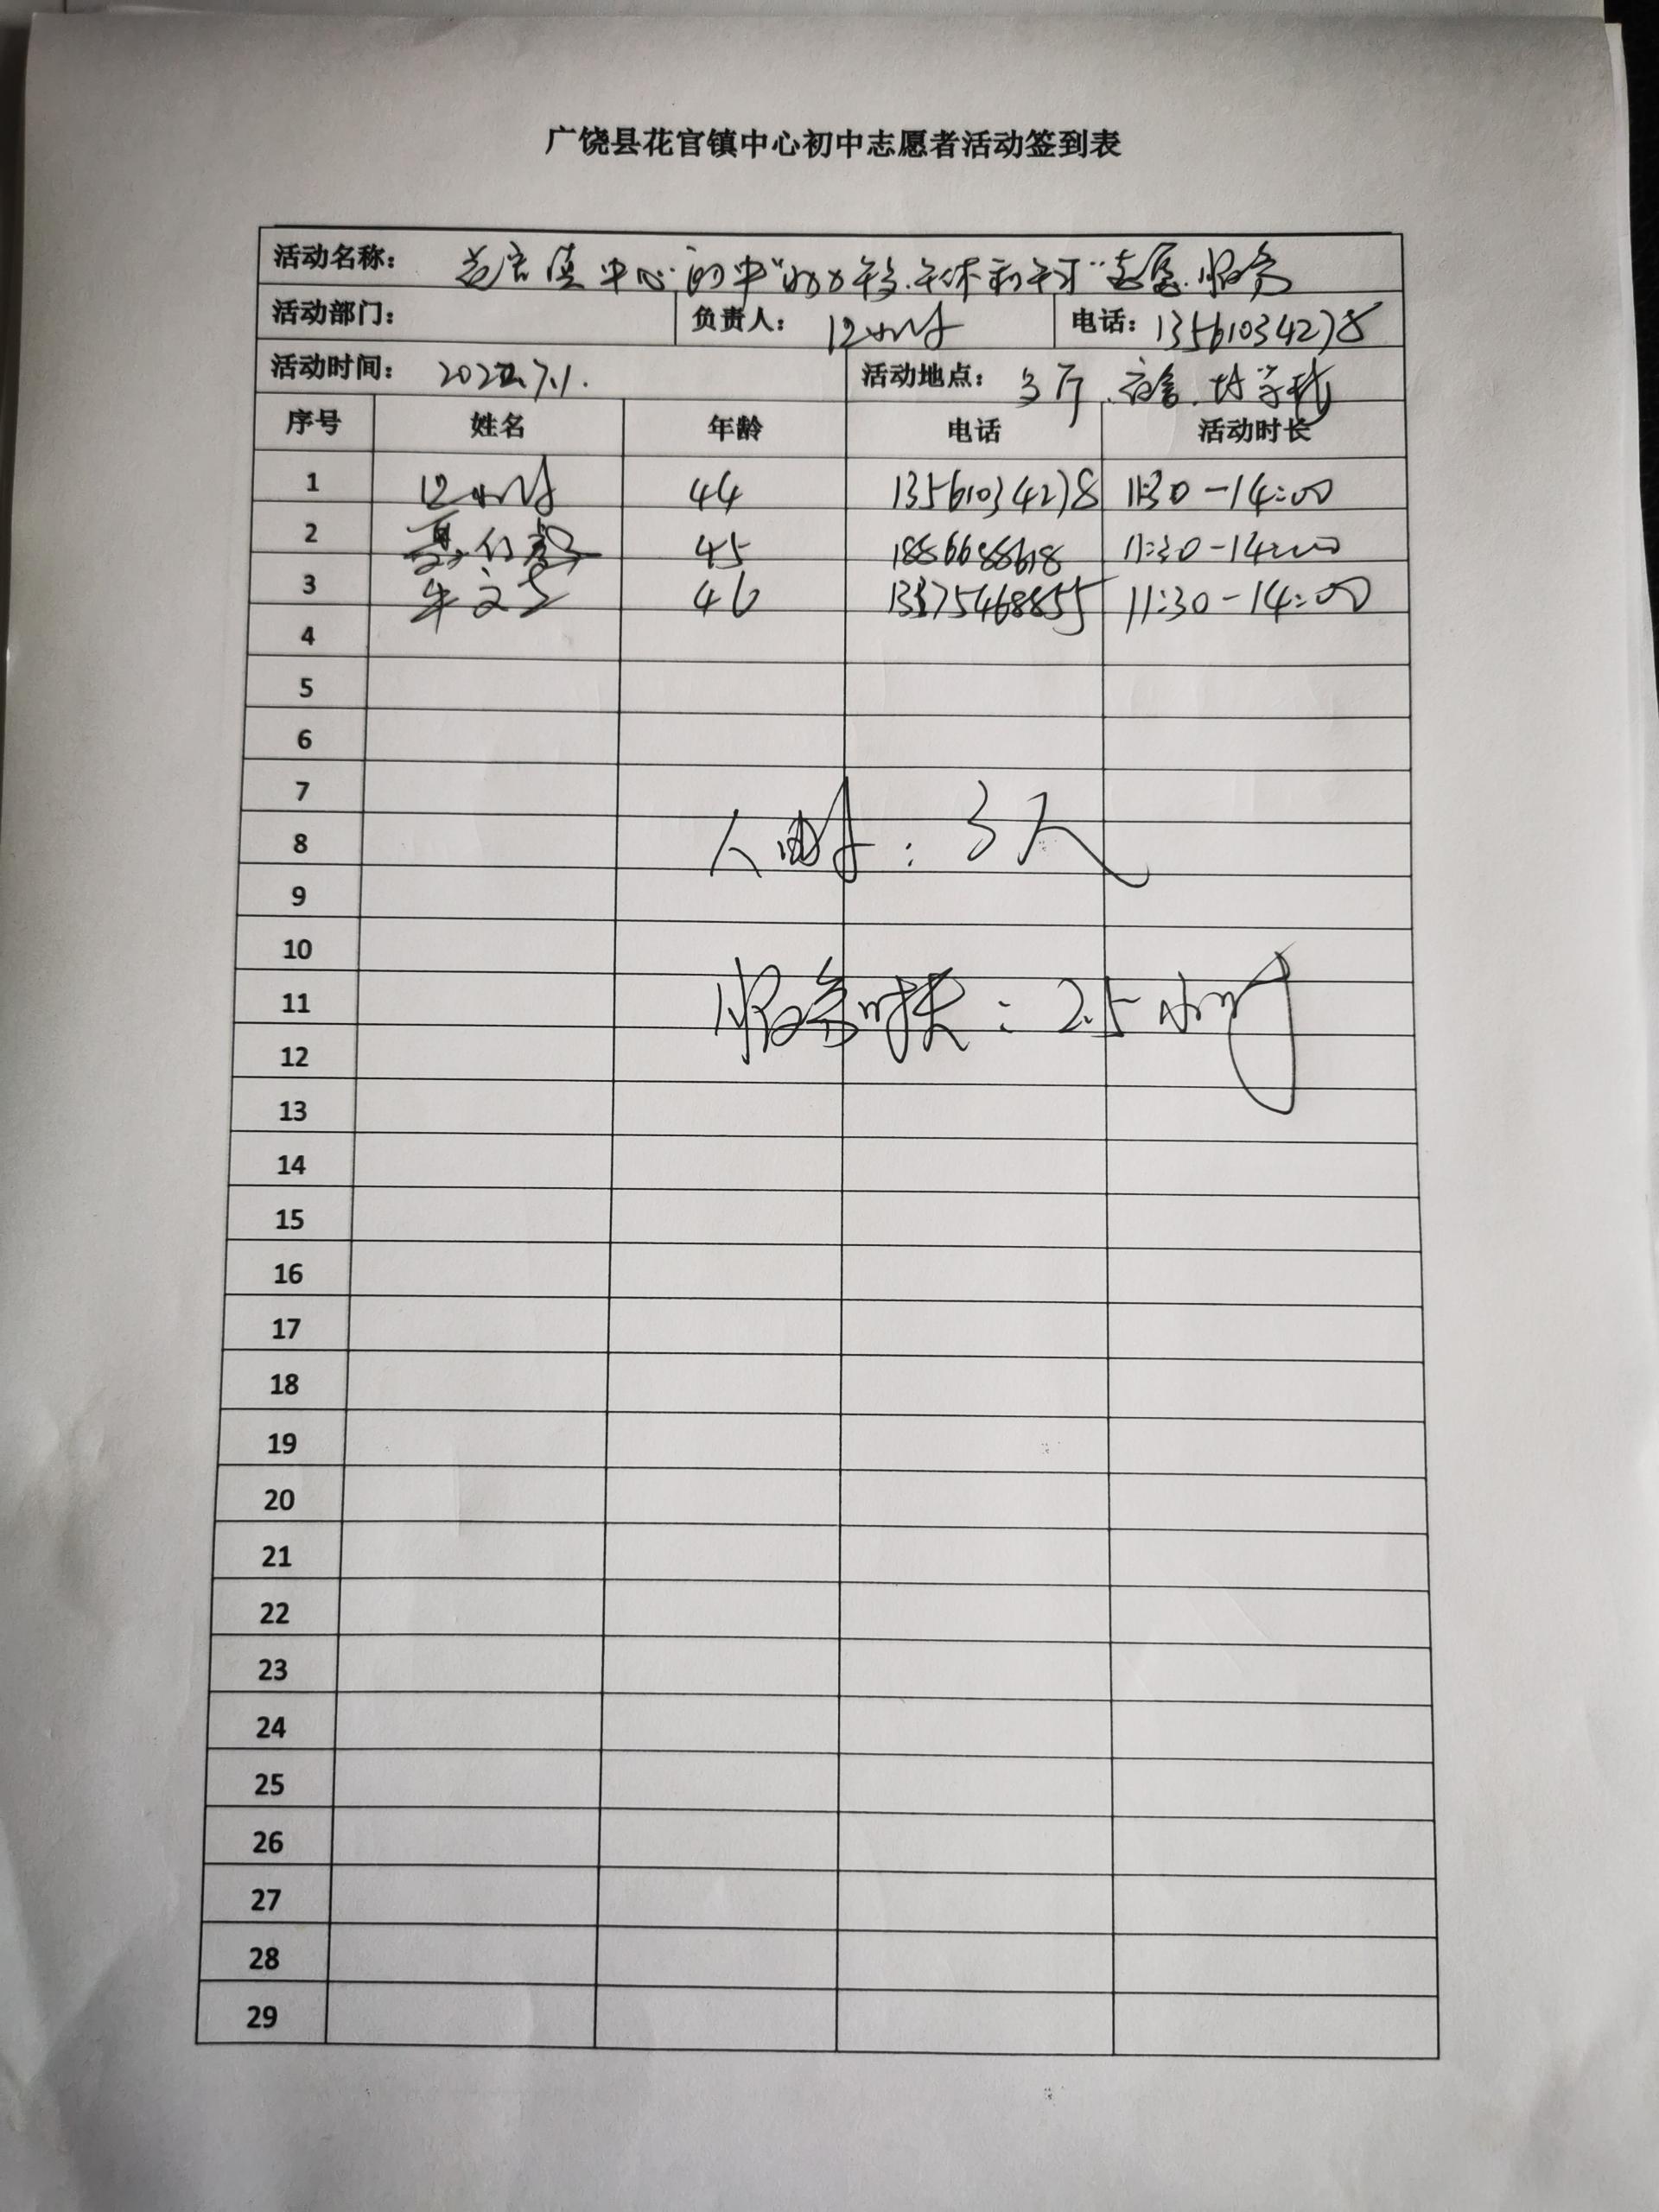 广饶县花官镇中心初中志愿者活动签到表
活动名称： 花官镇中心初中"助力午餐、午休和午习"志愿服务
活动部门： 负责人： 电话：13561034278
活动时间： 2022.7.1. 活动地点： 餐厅、宿舍、
序号 姓名 年龄 电话 活动时长
1 44 13561034278 11:30-14:00
2 45 18866688618 11:30-14:00
3 46 11:30-14:00
4
5
6
7
8 ：3人
9
10
11 服务时长：2.5小时
12
13
14
15
16
17
18
19
20
21
22
23
24
25
26
27
28
29